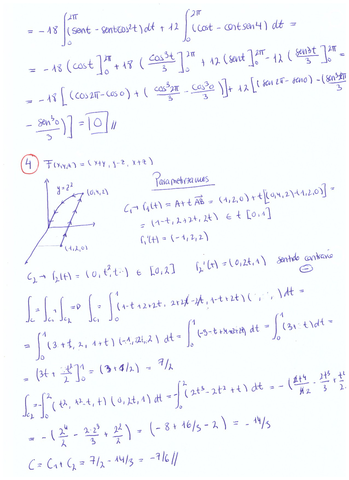 = -18 ∫₀^2π (sent - sent cos²t) dt + 12 ∫₀^2π (cost - cost sen4) dt =
= -18 (cost]₀^2π + 18 (cos³t/3]₀^2π + 12 (sent]₀^2π - 12 (sen³t/3]₀^2π =
= -18 [(cos2π - cos0) + (cos³2π/3 - cos³0/3)] + 12 [(sen2π - sen0) - (sen³2π/3
- sen³0/3)] = 0 //
4 F(x,y,z) = (x+y, y-z, x+z)
y=z² (0,4,2) (1,2,0)
Parametrizamos
C₁ → r₁(t) = A + t AB = (1,2,0) + t[(0,4,2) - (1,2,0)] =
= (1-t, 2+2t, 2t) t ∈ [0,1]
r₁'(t) = (-1,2,2)
C₂ → r₂(t) = (0, t², t) t ∈ [0,2] r₂'(t) = (0,2t,1) sentido contrario
-
∫c = ∫c₁ + ∫c₂ => ∫c₁ = ∫₀¹ (1-t+2+2t, 2+2t-2t, 1-t+2t) ( , , ) dt =
= ∫₀¹ (3+t, 2, 1+t) (-1,2,2) dt = ∫₀¹ (-3-t+4+2+2t) dt = ∫₀¹ (3+t) dt =
= (3t + t²/2]₀¹ = (3+1/2) = 7/2
∫c₂ = -∫₀² (t², t²-t, t) (0,2t,1) dt = -∫₀² (2t³ - 2t² + t) dt = - (2t⁴/4 - 2t³/3 + t²/2
= - (2⁴/2 - 2·2³/3 + 2²/2) = (-8 + 16/3 - 2) = -14/3
C = C₁ + C₂ = 7/2 - 14/3 = -7/6 //